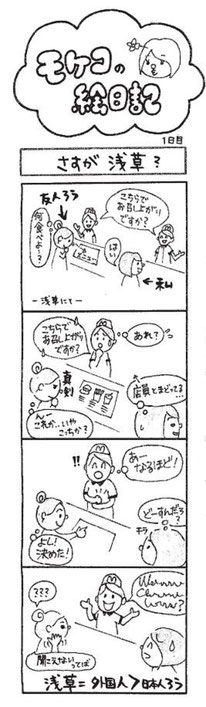 モケコの
絵日記
1日目
さすが 浅草?
友人ろう
何食べよ〜?
こちらで
お召し上がり
ですか?
はい
メニュー
←私
ー浅草にてー
こちらで
お召し上がり
ですか?
あれ?
真剣
店員とまどってる…
んー
これか…いや
こっちか?
!!
あー
なるほど!
どーすんだろ
?
チラ
よし!
決めた!
???
聞こえないってば
浅草=外国人>日本人ろう